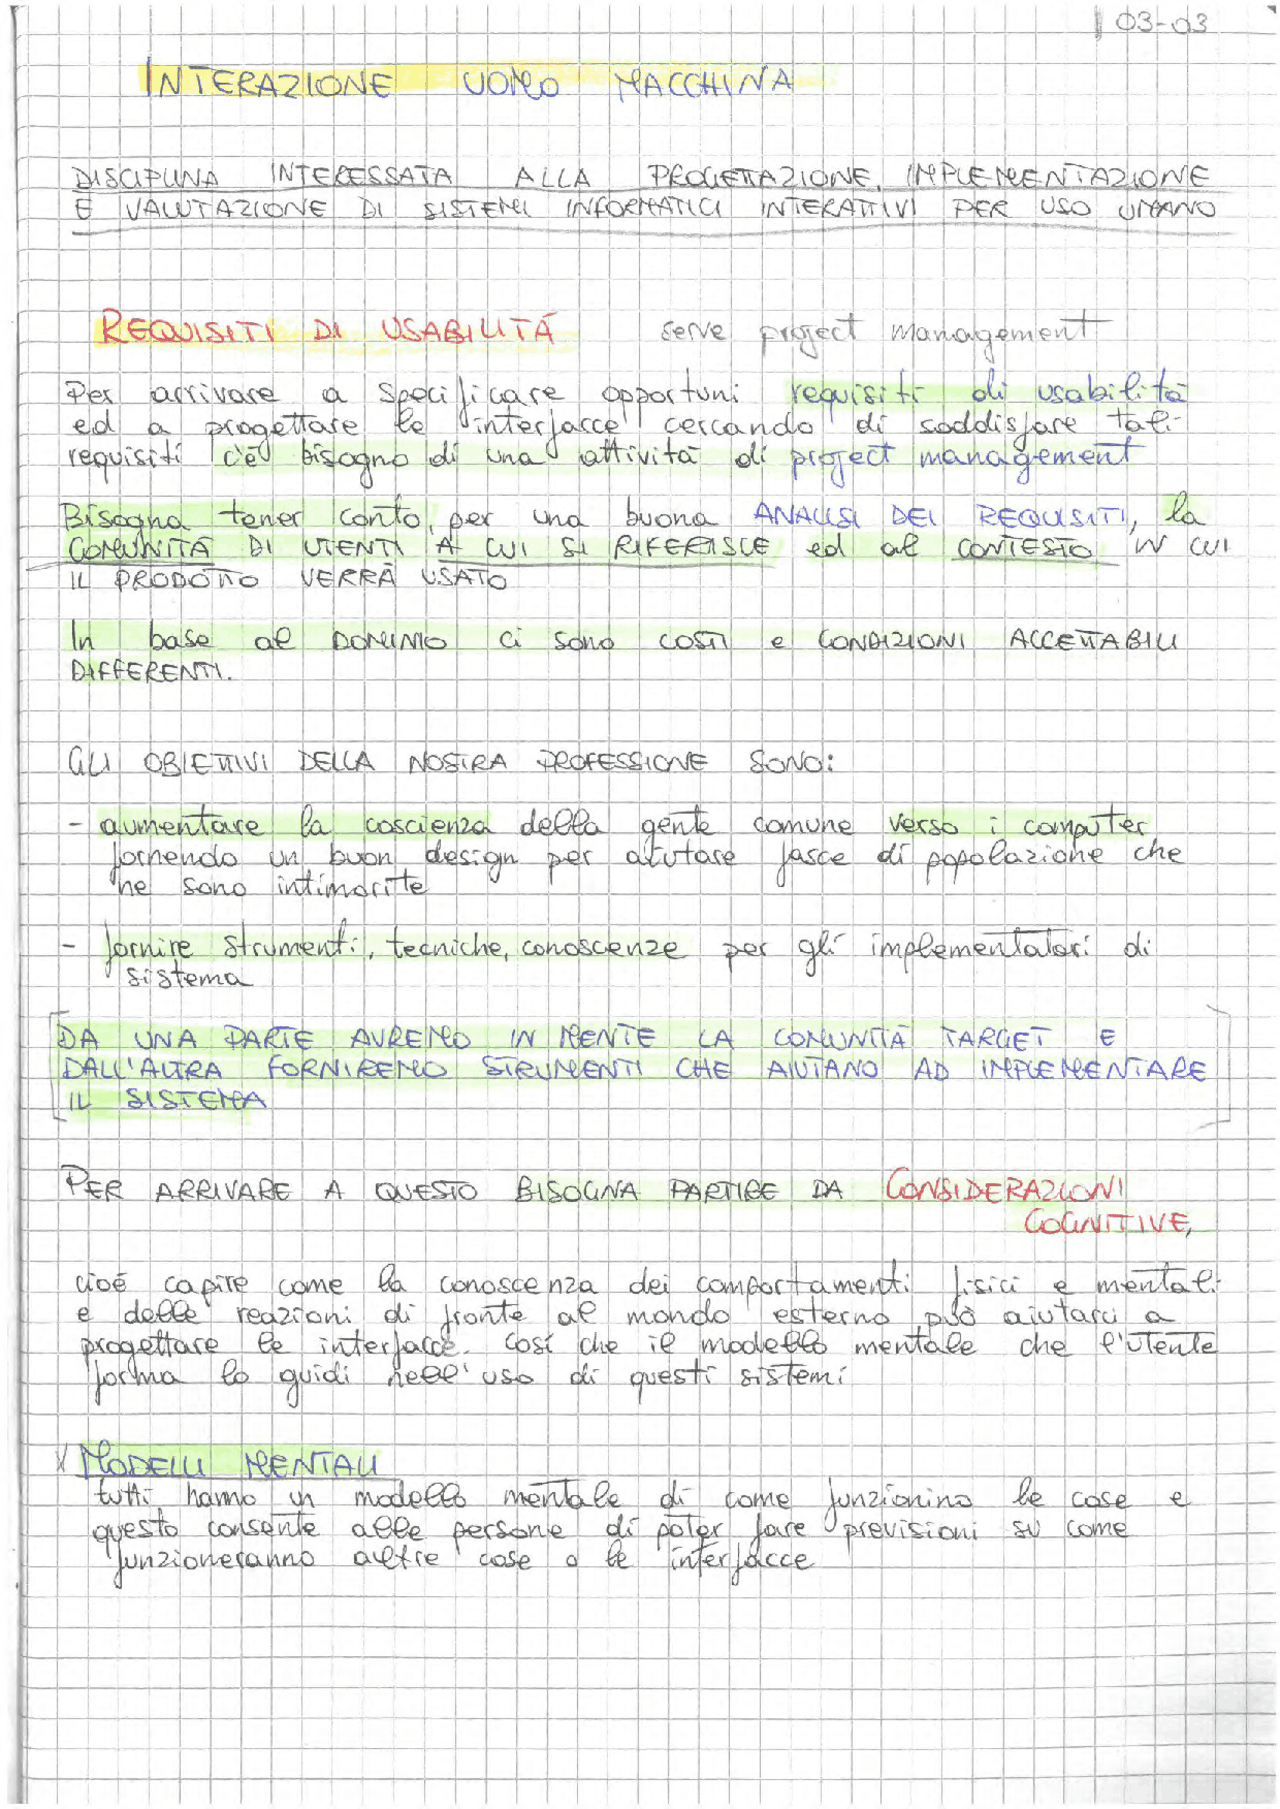 03-03
INTERAZIONE UOMO MACCHINA
DISCIPLINA INTERESSATA ALLA PROGETTAZIONE, IMPLEMENTAZIONE
E VALUTAZIONE DI SISTEMI INFORMATICI INTERATTIVI PER USO UMANO
REQUISITI DI USABILITÁ serve project management
Per arrivare a specificare opportuni requisiti di usabilità
ed a progettare le interfacce cercando di soddisfare tali
requisiti c'è bisogno di una attività di project management
Bisogna tener conto, per una buona ANALISI DEI REQUISITI, la
COMUNITÀ DI UTENTI A CUI SI RIFERISCE ed al CONTESTO IN CUI
IL PRODOTTO VERRÀ USATO
In base al DOMINIO ci sono COSTI e CONDIZIONI ACCETTABILI
DIFFERENTI.
GLI OBIETTIVI DELLA NOSTRA PROFESSIONE SONO:
- aumentare la coscienza della gente comune verso i computer
fornendo un buon design per aiutare fasce di popolazione che
ne sono intimorite
- fornire strumenti, tecniche, conoscenze per gli implementatori di
sistema
DA UNA PARTE AVREMO IN MENTE LA COMUNITÀ TARGET E
DALL'ALTRA FORNIREMO STRUMENTI CHE AIUTANO AD IMPLEMENTARE
IL SISTEMA
PER ARRIVARE A QUESTO BISOGNA PARTIRE DA CONSIDERAZIONI
COGNITIVE,
cioé capire come la conoscenza dei comportamenti fisici e mentali
e delle reazioni di fronte al mondo esterno può aiutarci a
progettare le interfacce. così che il modello mentale che l'utente
forma lo guidi nell'uso di questi sistemi
X MODELLI MENTALI
tutti hanno un modello mentale di come funzionino le cose e
questo consente alle persone di poter fare previsioni su come
funzioneranno altre cose o le interfacce